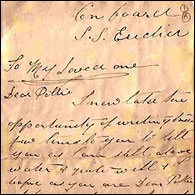 On board
S.S. Eucher
To My Loved one
Dear Pollie
I now take the
opportunity of writing these
few lines to you to tell
you as I am still alive
well & quite well as I
hope as you are Dear Poll